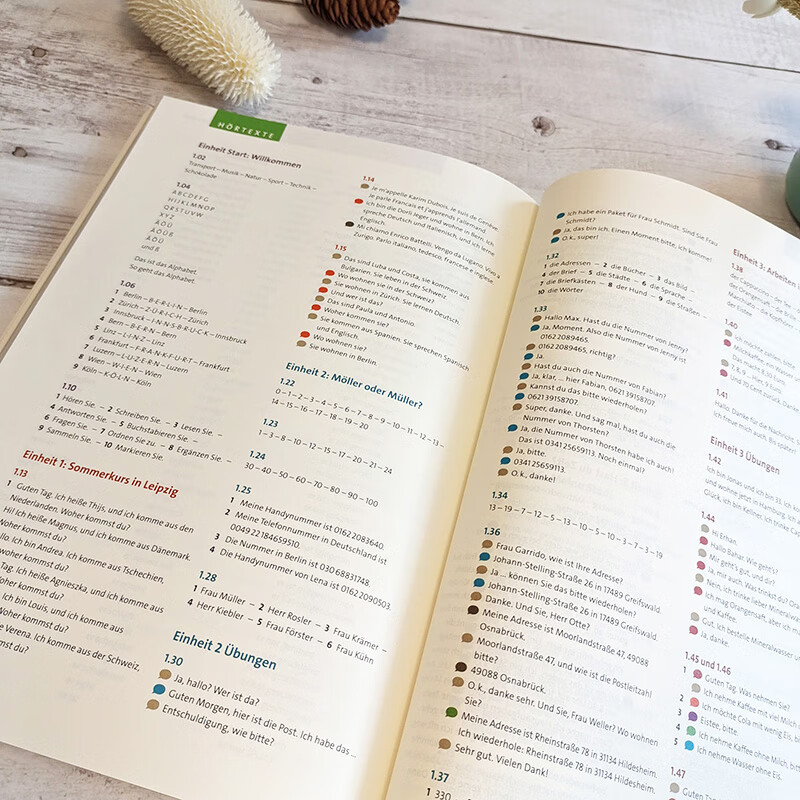 HÖRTEXTE
Einheit Start: Willkommen
1.02
Transport – Musik – Natur – Sport – Technik –
Schokolade
1.04
A B C D E F G
H I J K L M N O P
Q R S T U V W
X Y Z
Ä Ö Ü
Ä Ö Ü ß
Ä Ö Ü
und ß
Das ist das Alphabet.
So geht das Alphabet.
1.06
1 Berlin – B-E-R-L-I-N – Berlin
2 Zürich – Z-Ü-R-I-C-H – Zürich
3 Innsbruck – I-N-N-S-B-R-U-C-K – Innsbruck
4 Bern – B-E-R-N – Bern
5 Linz – L-I-N-Z – Linz
6 Frankfurt – F-R-A-N-K-F-U-R-T – Frankfurt
7 Luzern – L-U-Z-E-R-N – Luzern
8 Wien – W-I-E-N – Wien
9 Köln – K-Ö-L-N – Köln
1.10
1 Hören Sie. – 2 Schreiben Sie. – 3 Lesen Sie. –
4 Antworten Sie. – 5 Buchstabieren Sie. –
6 Fragen Sie. – 7 Ordnen Sie zu. – 8 Ergänzen Sie. –
9 Sammeln Sie. – 10 Markieren Sie.
Einheit 1: Sommerkurs in Leipzig
1.13
1 Guten Tag. Ich heiße Thijs, und ich komme aus den
Niederlanden. Woher kommst du?
Hi! Ich heiße Magnus, und ich komme aus Dänemark.
Woher kommst du?
Ich bin Andrea. Ich komme aus Tschechien,
woher kommst du?
Tag. Ich heiße Agnieszka, und ich komme aus
Woher kommst du?
Ich bin Louis, und ich komme aus
Woher kommst du?
Verena. Ich komme aus der Schweiz,
du?
1.14
Je m'appelle Karim Dubois, je suis de Genève.
Je parle Francais et j'apprends l'allemand.
Ich bin die Doris Ieger und wohne in Bern. Ich
spreche Deutsch und Italienisch, und ich lerne
Englisch.
Mi chiamo Enrico Battelli. Vengo da Lugano. Vivo a
Zurigo. Parlo italiano, tedesco, francese e inglese.
1.15
Das sind Luba und Costa, sie kommen aus
Bulgarien. Sie leben in der Schweiz.
Wo wohnen sie in der Schweiz?
Sie wohnen in Zürich. Sie lernen Deutsch.
Und wer ist das?
Das sind Paula und Antonio.
Woher kommen sie?
Sie kommen aus Spanien. Sie sprechen Spanisch
und Englisch.
Wo wohnen sie?
Sie wohnen in Berlin.
Einheit 2: Möller oder Müller?
1.22
0 – 1 – 2 – 3 – 4 – 5 – 6 – 7 – 8 – 9 – 10 – 11 – 12 – 13 –
14 – 15 – 16 – 17 – 18 – 19 – 20
1.23
1 – 3 – 8 – 10 – 12 – 15 – 17 – 20 – 21 – 24
1.24
30 – 40 – 50 – 60 – 70 – 80 – 90 – 100
1.25
1 Meine Handynummer ist 0162 2083640.
2 Meine Telefonnummer in Deutschland ist
0049 22184659510.
3 Die Nummer in Berlin ist 030 68831748.
4 Die Handynummer von Lena ist 0162 2090503.
1.28
1 Frau Müller – 2 Herr Rosler – 3 Frau Krämer –
4 Herr Kiebler – 5 Frau Förster – 6 Frau Kühn
Einheit 2 Übungen
1.30
Ja, hallo? Wer ist da?
Guten Morgen, hier ist die Post. Ich habe das ...
Entschuldigung, wie bitte?
Ich habe ein Paket für Frau Schmidt. Sind Sie Frau
Schmidt?
Ja, das bin ich. Einen Moment bitte, ich komme!
O.k., super!
1.32
1 die Adressen – 2 die Bücher – 3 das Bild –
4 der Brief – 5 die Städte – 6 die Sprache –
7 die Briefkästen – 8 der Hund – 9 die Straßen –
10 die Wörter
1.33
Hallo Max. Hast du die Nummer von Jenny?
Ja, Moment. Also die Nummer von Jenny ist
0162 2089465.
0162 2089465, richtig?
Ja.
Hast du auch die Nummer von Fabian?
Ja, klar, ... hier Fabian, 062139158707.
Kannst du das bitte wiederholen?
062139158707.
Super, danke. Und sag mal, hast du auch die
Nummer von Thorsten?
Ja, die Nummer von Thorsten habe ich auch!
Das ist 03412659113. Noch einmal?
Ja, bitte.
03412659113.
O.k., danke!
1.34
13 – 19 – 7 – 12 – 5 – 13 – 10 – 5 – 10 – 3 – 7 – 3 – 19
1.36
Frau Garrido, wie ist Ihre Adresse?
Johann-Stelling-Straße 26 in 17489 Greifswald.
Ja ... können Sie das bitte wiederholen?
Johann-Stelling-Straße 26 in 17489 Greifswald.
Danke. Und Sie, Herr Otte?
Meine Adresse ist Moorlandstraße 47, 49088
Osnabrück.
Moorlandstraße 47, und wie ist die Postleitzahl
bitte?
49088 Osnabrück.
O.k., danke sehr. Und Sie, Frau Weller? Wo wohnen
Sie?
Meine Adresse ist Rheinstraße 78 in 31134 Hildesheim.
Ich wiederhole: Rheinstraße 78 in 31134 Hildesheim.
Sehr gut. Vielen Dank!
1.37
1 330
Einheit 3: Arbeiten
1.38
1.40
Ich möchte zahlen, bitte.
1.41
Hallo, Danke für die Nachricht.
Ich freue mich auch. Bis später!
Einheit 3 Übungen
1.42
Ich bin Jonas und ich bin 33. Ich
und wohne jetzt in Hamburg.
Glück. Ich bin Kellner. Ich trinke
1.44
Hi Erhan.
Hallo Bahar. Wie geht's?
Mir geht's gut, und dir?
Ja, mir auch. Was trinkst du?
Nein, ich trinke lieber Mineralwasser
Ich mag Orangensaft, aber ich
und Kaffee.
Gut. Ich bestelle Mineralwasser
Ja, danke.
1.45 und 1.46
1 Guten Tag. Was nehmen Sie?
Ich nehme Kaffee mit viel Milch
2 Ich möchte Cola mit wenig Eis,
3 Eistee, bitte.
4 Ich nehme Kaffee ohne Milch, bitte.
5 Ich nehme Wasser ohne Eis.
1.47
Guten Tag